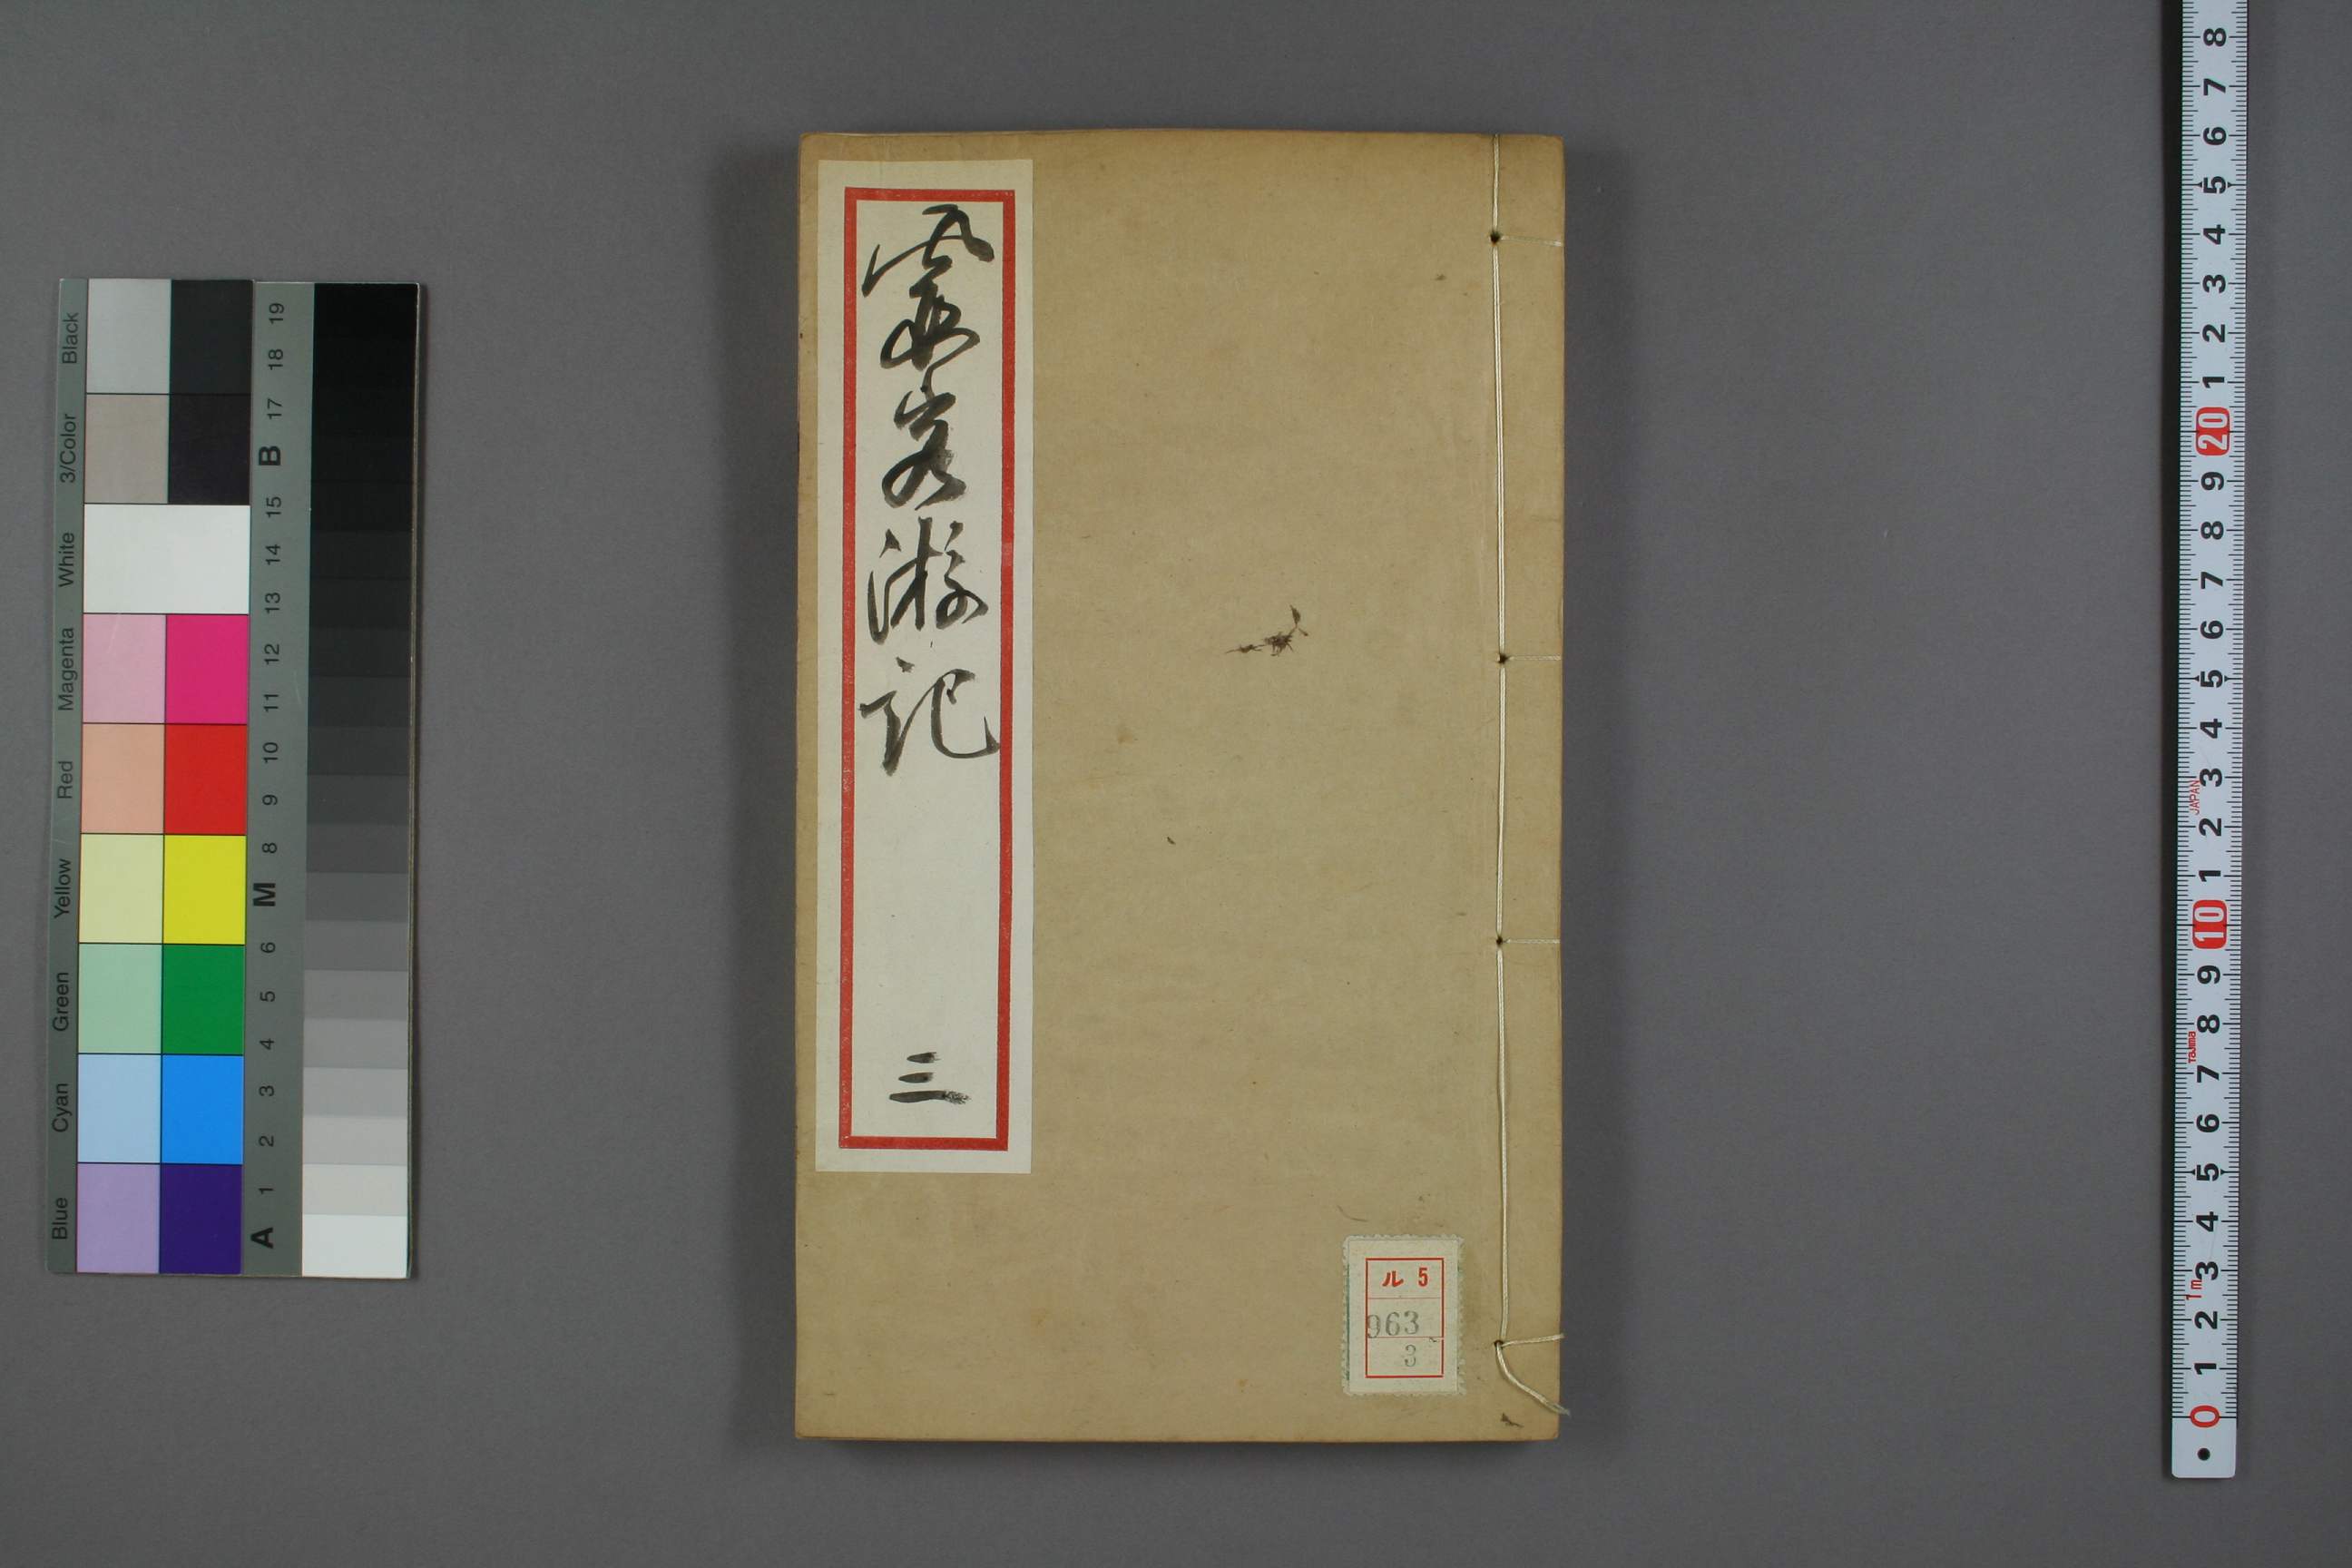 霞客游記
三
ル 5
963
3
Blue Cyan Green Yellow Red Magenta White 3/Color Black
A 1 2 3 4 5 6 M 8 9 10 11 12 13 14 15 B 17 18 19
0 1 2 3 4 5 6 7 8 9 10 1 2 3 4 5 6 7 8 9 20 1 2 3 4 5 6 7 8
1m Tajima JAPAN